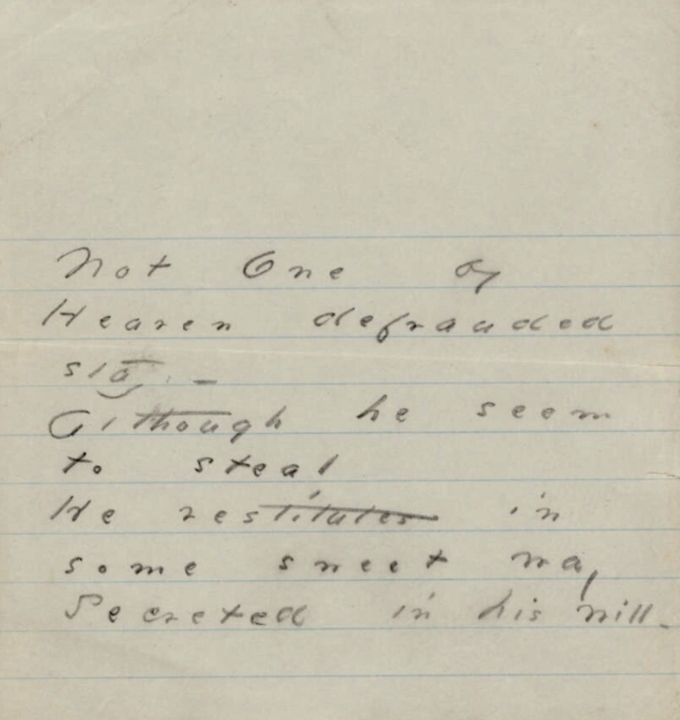 Not One by
Heaven defrauded
stay –
Although he seem
to steal
He restitutes in
some sweet way
Secreted in his will –